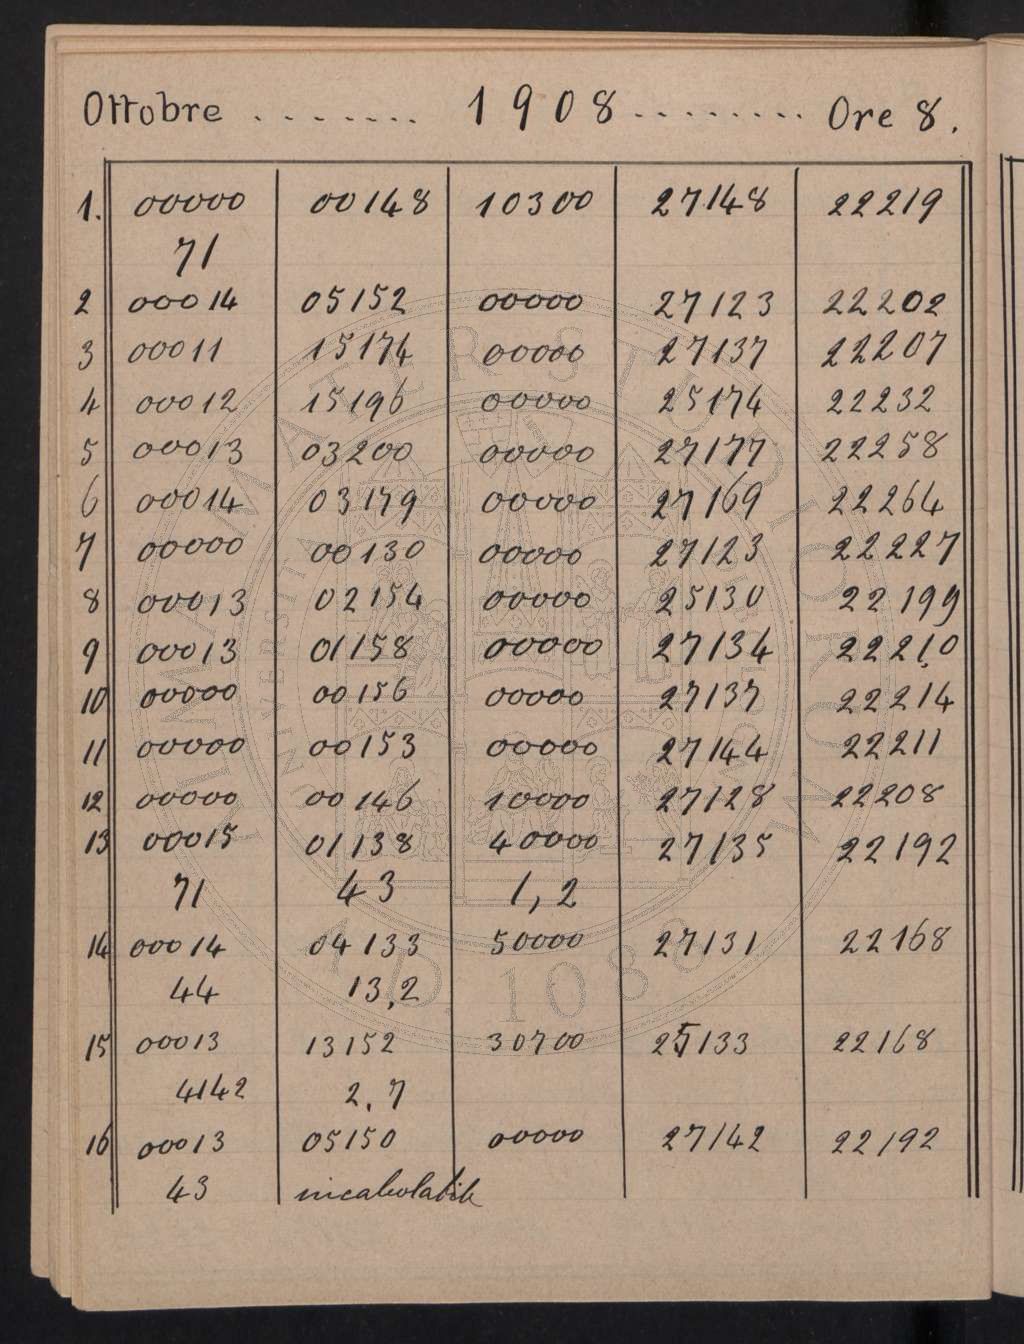 Ottobre ........ 1908 ......... Ore 8.
1. 00000 00148 10300 27148 22219
71
2 00014 05152 00000 27123 22202
3 00011 15174 00000 27137 22207
4 00012 15196 00000 25174 22232
5 00013 03200 00000 27177 22258
6 00014 03179 00000 27169 22264
7 00000 00130 00000 27123 22227
8 00013 02154 00000 25130 22199
9 00013 01158 00000 27134 22210
10 00000 00156 00000 27137 22214
11 00000 00153 00000 27144 22211
12 00000 00146 10000 27128 22208
13 00015 01138 40000 27135 22192
71 43 1,2
14 00014 04133 50000 27131 22168
44 13,2
15 00013 13152 30700 25133 22168
4142 2.7
16 00013 05150 00000 27142 22192
43
ALMA MATER STUDIORUM
A.D. 1088